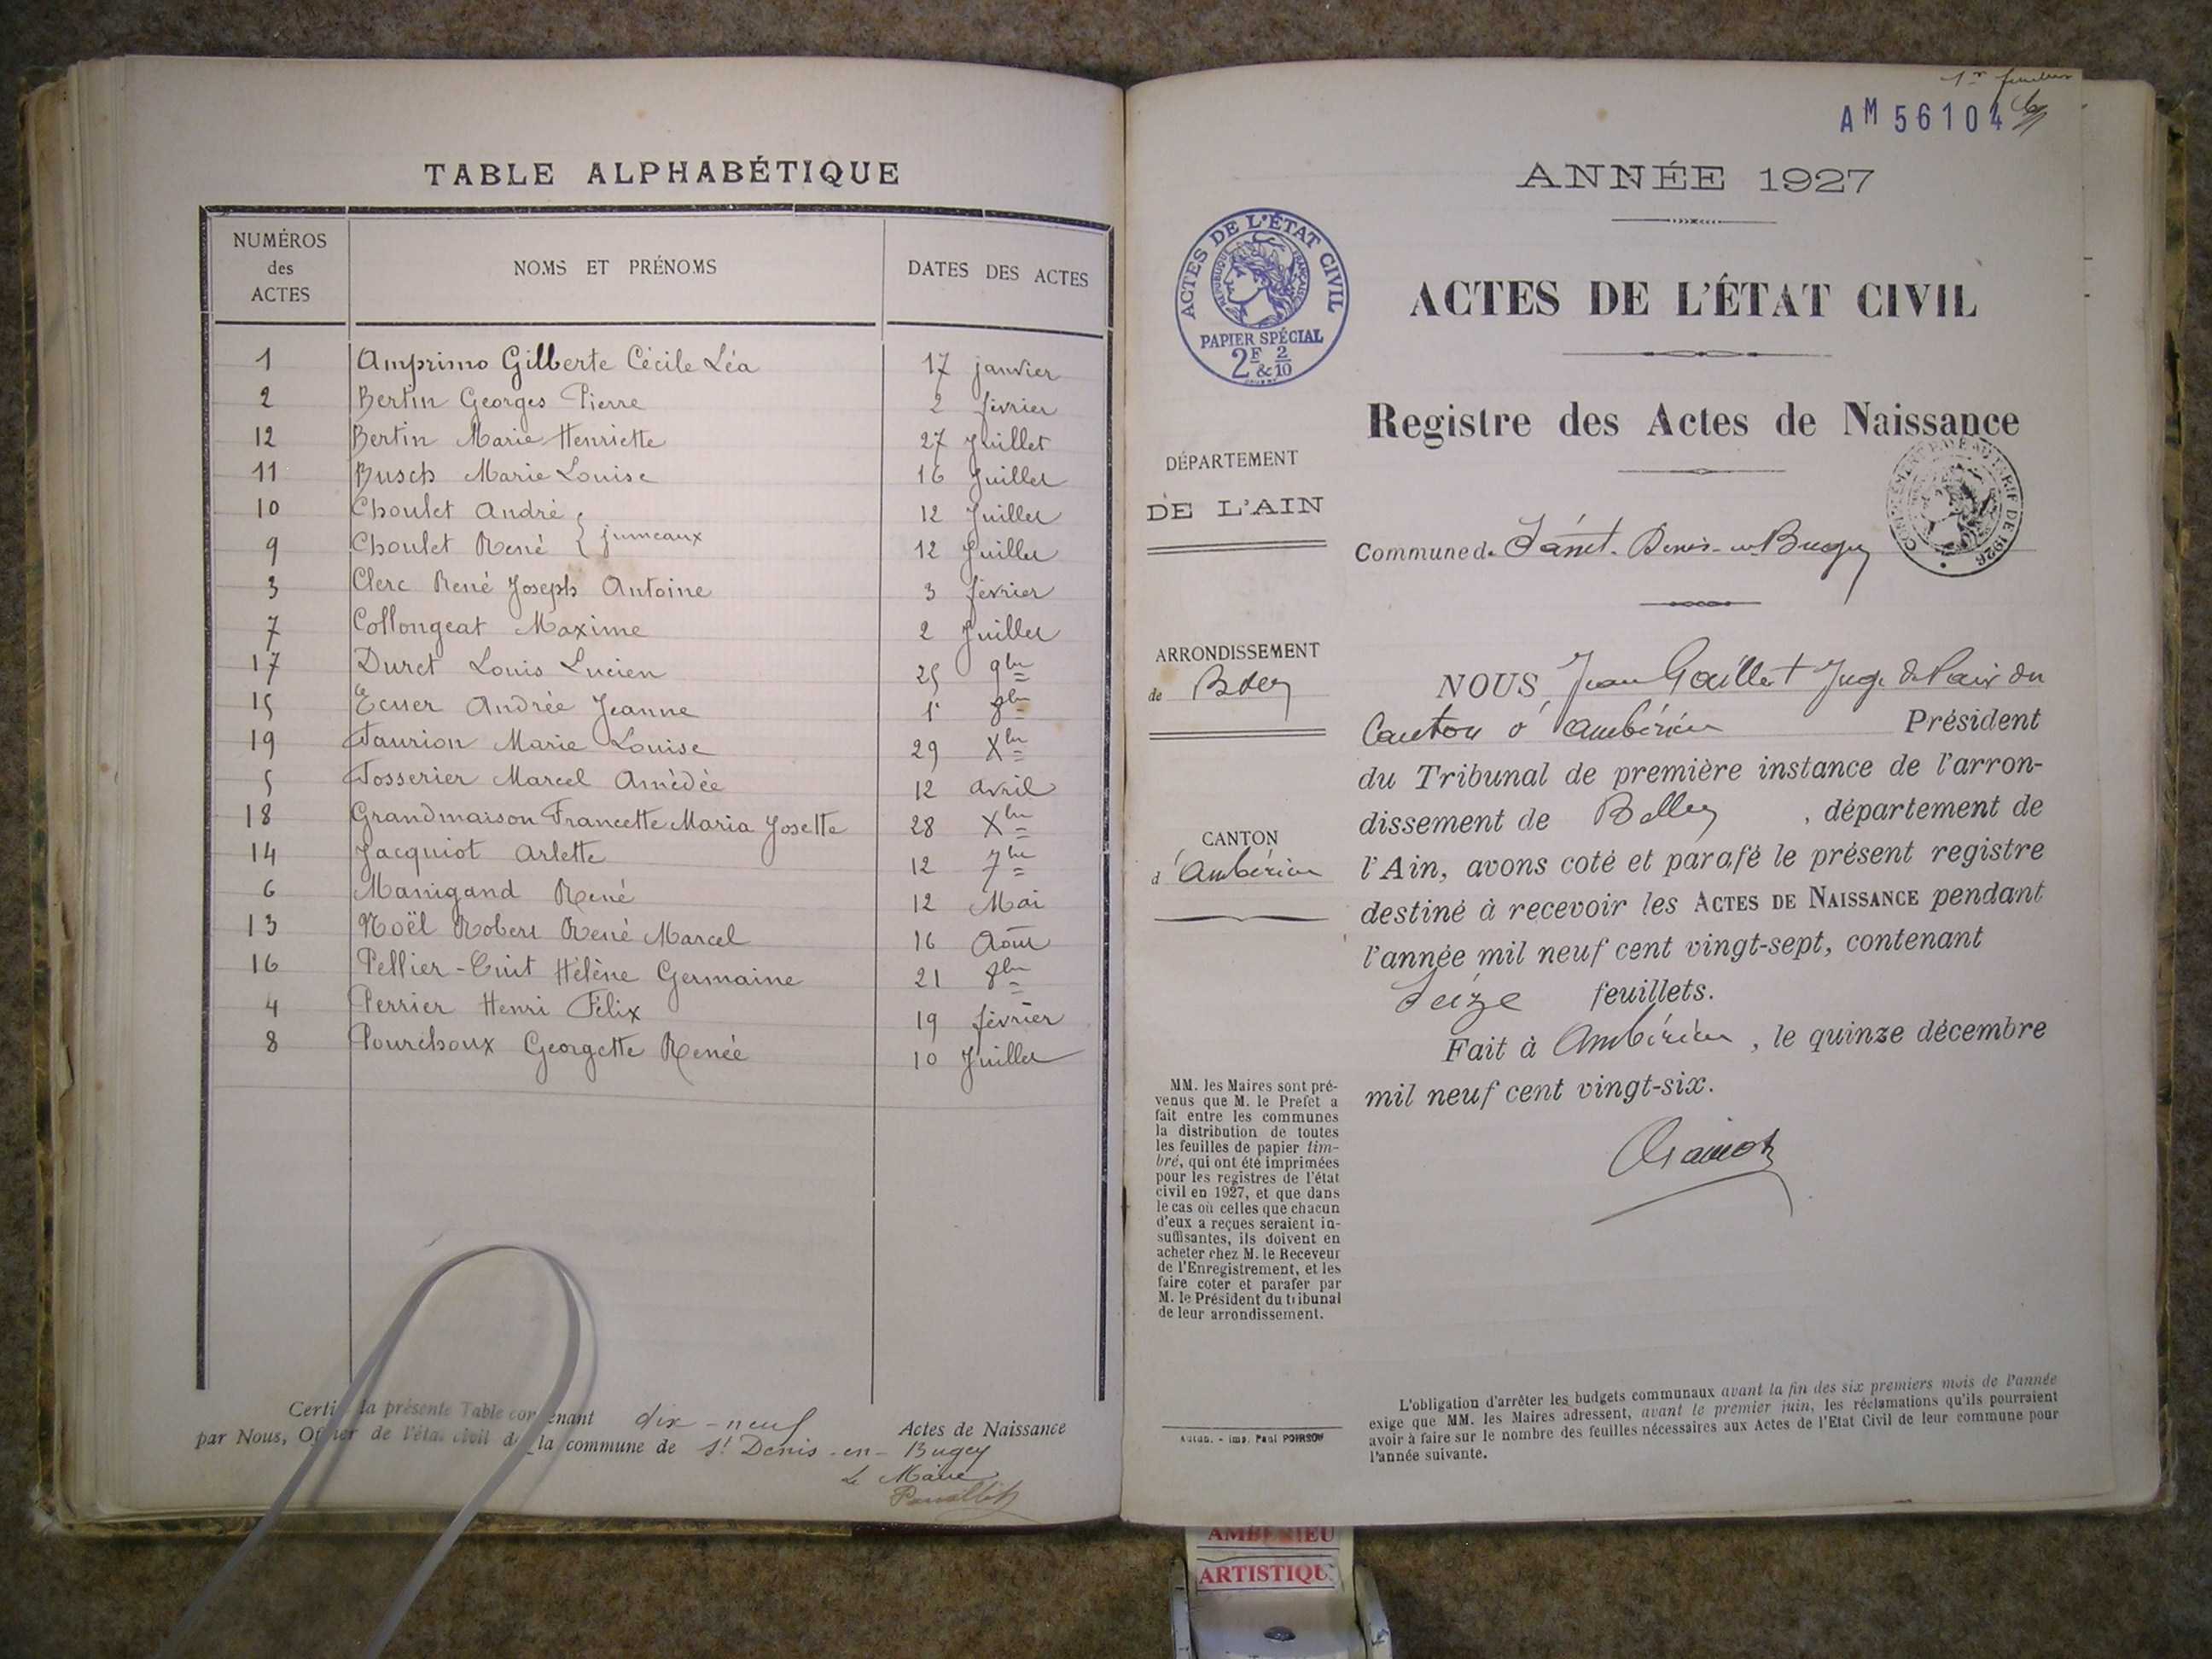 TABLE ALPHABÉTIQUE
NUMÉROS des ACTES NOMS ET PRÉNOMS DATES DES ACTES
1 Amprimo Gilberte Cécile Léa 17 janvier
2 Bertin Georges Pierre 2 février
12 Bertin Marie Henriette 27 Juillet
11 Busch Marie Louise 16 Juillet
10 Choulet André 12 Juillet
jumeaux
9 Choulet René 12 Juillet
3 Clerc René Joseph Antoine 3 février
7 Collongeat Maxime 2 Juillet
17 Duret Louis Lucien 25 9bre
15 Ecuer Andrée Jeanne 1er 8bre
19 Faurion Marie Louise 29 Xbre
5 Fosserier Marcel Amédée 12 avril
18 Grandmaison Francette Maria Josette 28 Xbre
14 Jacquiot Arlette 12 7bre
6 Manigand René 12 Mai
13 Noël Robert René Marcel 16 Août
16 Pellier-Cuit Hélène Germaine 21 8bre
4 Perrier Henri Félix 19 février
8 Pourchoux Georgette Renée 10 Juillet
Certi la présente Table con enant dix-neuf Actes de Naissance
par Nous, Of ier de l'état civil de la commune de St Denis-en-Bugey
Le Maire
1er feuillet
AM 56104
ANNÉE 1927
ACTES DE L'ÉTAT CIVIL
RÉPUBLIQUE FRANÇAISE
PAPIER SPÉCIAL
2F & 2/10
ACTES DE L'ÉTAT CIVIL
Registre des Actes de Naissance
DÉPARTEMENT
DE L'AIN
Commune de Saint-Denis-en-Bugey
TARIF DE 1926
ARRONDISSEMENT
de Belley
CANTON
d'Ambérieu
NOUS Jean Gaillot Juge de Paix du
Canton d'Ambérieu Président
du Tribunal de première instance de l'arron-
dissement de Belley, département de
l'Ain, avons coté et parafé le présent registre
destiné à recevoir les ACTES DE NAISSANCE pendant
l'année mil neuf cent vingt-sept, contenant
Seize feuillets.
Fait à Ambérieu, le quinze décembre
mil neuf cent vingt-six.
MM. les Maires sont pré-
venus que M. le Préfet a
fait entre les communes
la distribution de toutes
les feuilles de papier tim-
bré, qui ont été imprimées
pour les registres de l'état
civil en 1927, et que dans
le cas où celles que chacun
d'eux a reçues seraient in-
suffisantes, ils doivent en
acheter chez M. le Receveur
de l'Enregistrement, et les
faire coter et parafer par
M. le Président du tribunal
de leur arrondissement.
- Imp. Paul POIRSON
L'obligation d'arrêter les budgets communaux avant la fin des six premiers mois de l'année
exige que MM. les Maires adressent, avant le premier juin, les réclamations qu'ils pourraient
avoir à faire sur le nombre des feuilles nécessaires aux Actes de l'Etat Civil de leur commune pour
l'année suivante.
AMBERIEU
ARTISTIQU